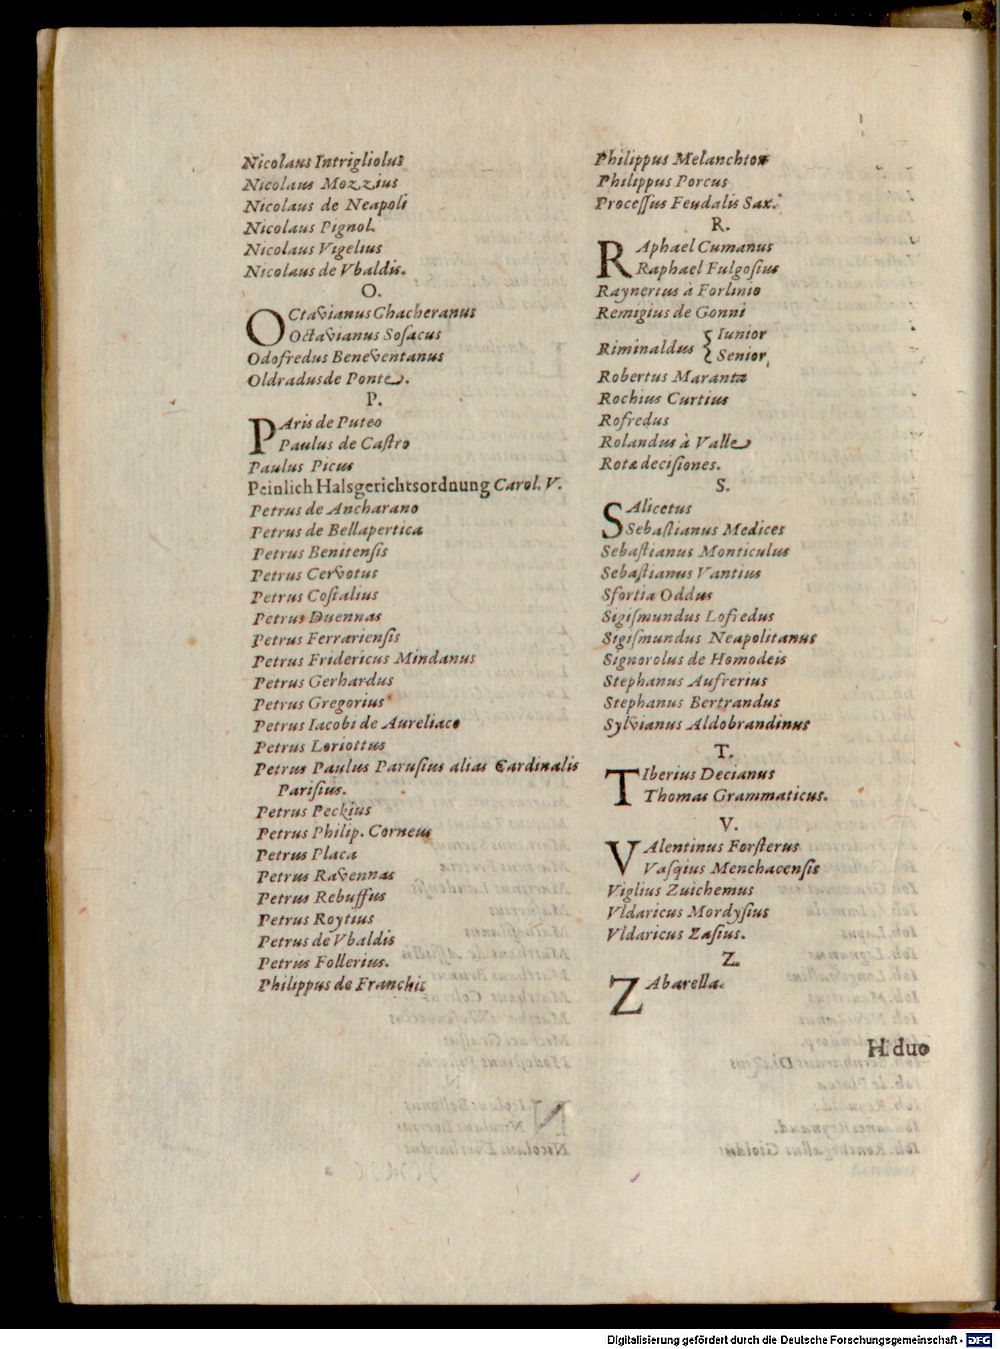 Nicolaus Intrigliolus
Nicolaus Mozzius
Nicolaus de Neapoli
Nicolaus Pignol.
Nicolaus Vigelius
Nicolaus de Vbaldis.
O.
OCtavianus Chacheranus
Octavianus Sosacus
Odofredus Beneventanus
Oldradus de Ponte.
P.
PAris de Puteo
Paulus de Caſtro
Paulus Picus
Peinlich Halsgerichtsordnung Carol. V.
Petrus de Ancharano
Petrus de Bellapertica
Petrus Benitenſis
Petrus Cervotus
Petrus Coſtalius
Petrus Duennas
Petrus Ferrarienſis
Petrus Fridericus Mindanus
Petrus Gerhardus
Petrus Gregorius
Petrus Iacobi de Aureliaco
Petrus Loriottus
Petrus Paulus Paruſius alias Cardinalis
Pariſius.
Petrus Peckius
Petrus Philip. Corneus
Petrus Placa
Petrus Ravennas
Petrus Rebuffus
Petrus Roytius
Petrus de Vbaldis
Petrus Follerius.
Philippus de Franchis
Philippus Melanchton
Philippus Porcus
Proceſſus Feudalis Sax.
R.
RAphael Cumanus
Raphael Fulgoſius
Raynerius à Forlinio
Remigius de Gonni
Riminaldus { Iunior
Senior,
Robertus Maranta
Rochius Curtius
Rofredus
Rolandus à Valle
Rotæ deciſiones.
S.
SAlicetus
Sebaſtianus Medices
Sebaſtianus Monticulus
Sebaſtianus Vantius
Sfortia Oddus
Sigiſmundus Lofredus
Sigiſmundus Neapolitanus
Signorolus de Homodeis
Stephanus Aufrerius
Stephanus Bertrandus
Sylvianus Aldobrandinus
T.
TIberius Decianus
Thomas Grammaticus.
V.
VAlentinus Forſterus
Vaſqius Menchacenſis
Viglius Zuichemus
Vldaricus Mordyſius
Vldaricus Zaſius.
Z.
ZAbarella.
H duo
Digitalisierung gefördert durch die Deutsche Forschungsgemeinschaft - DFG